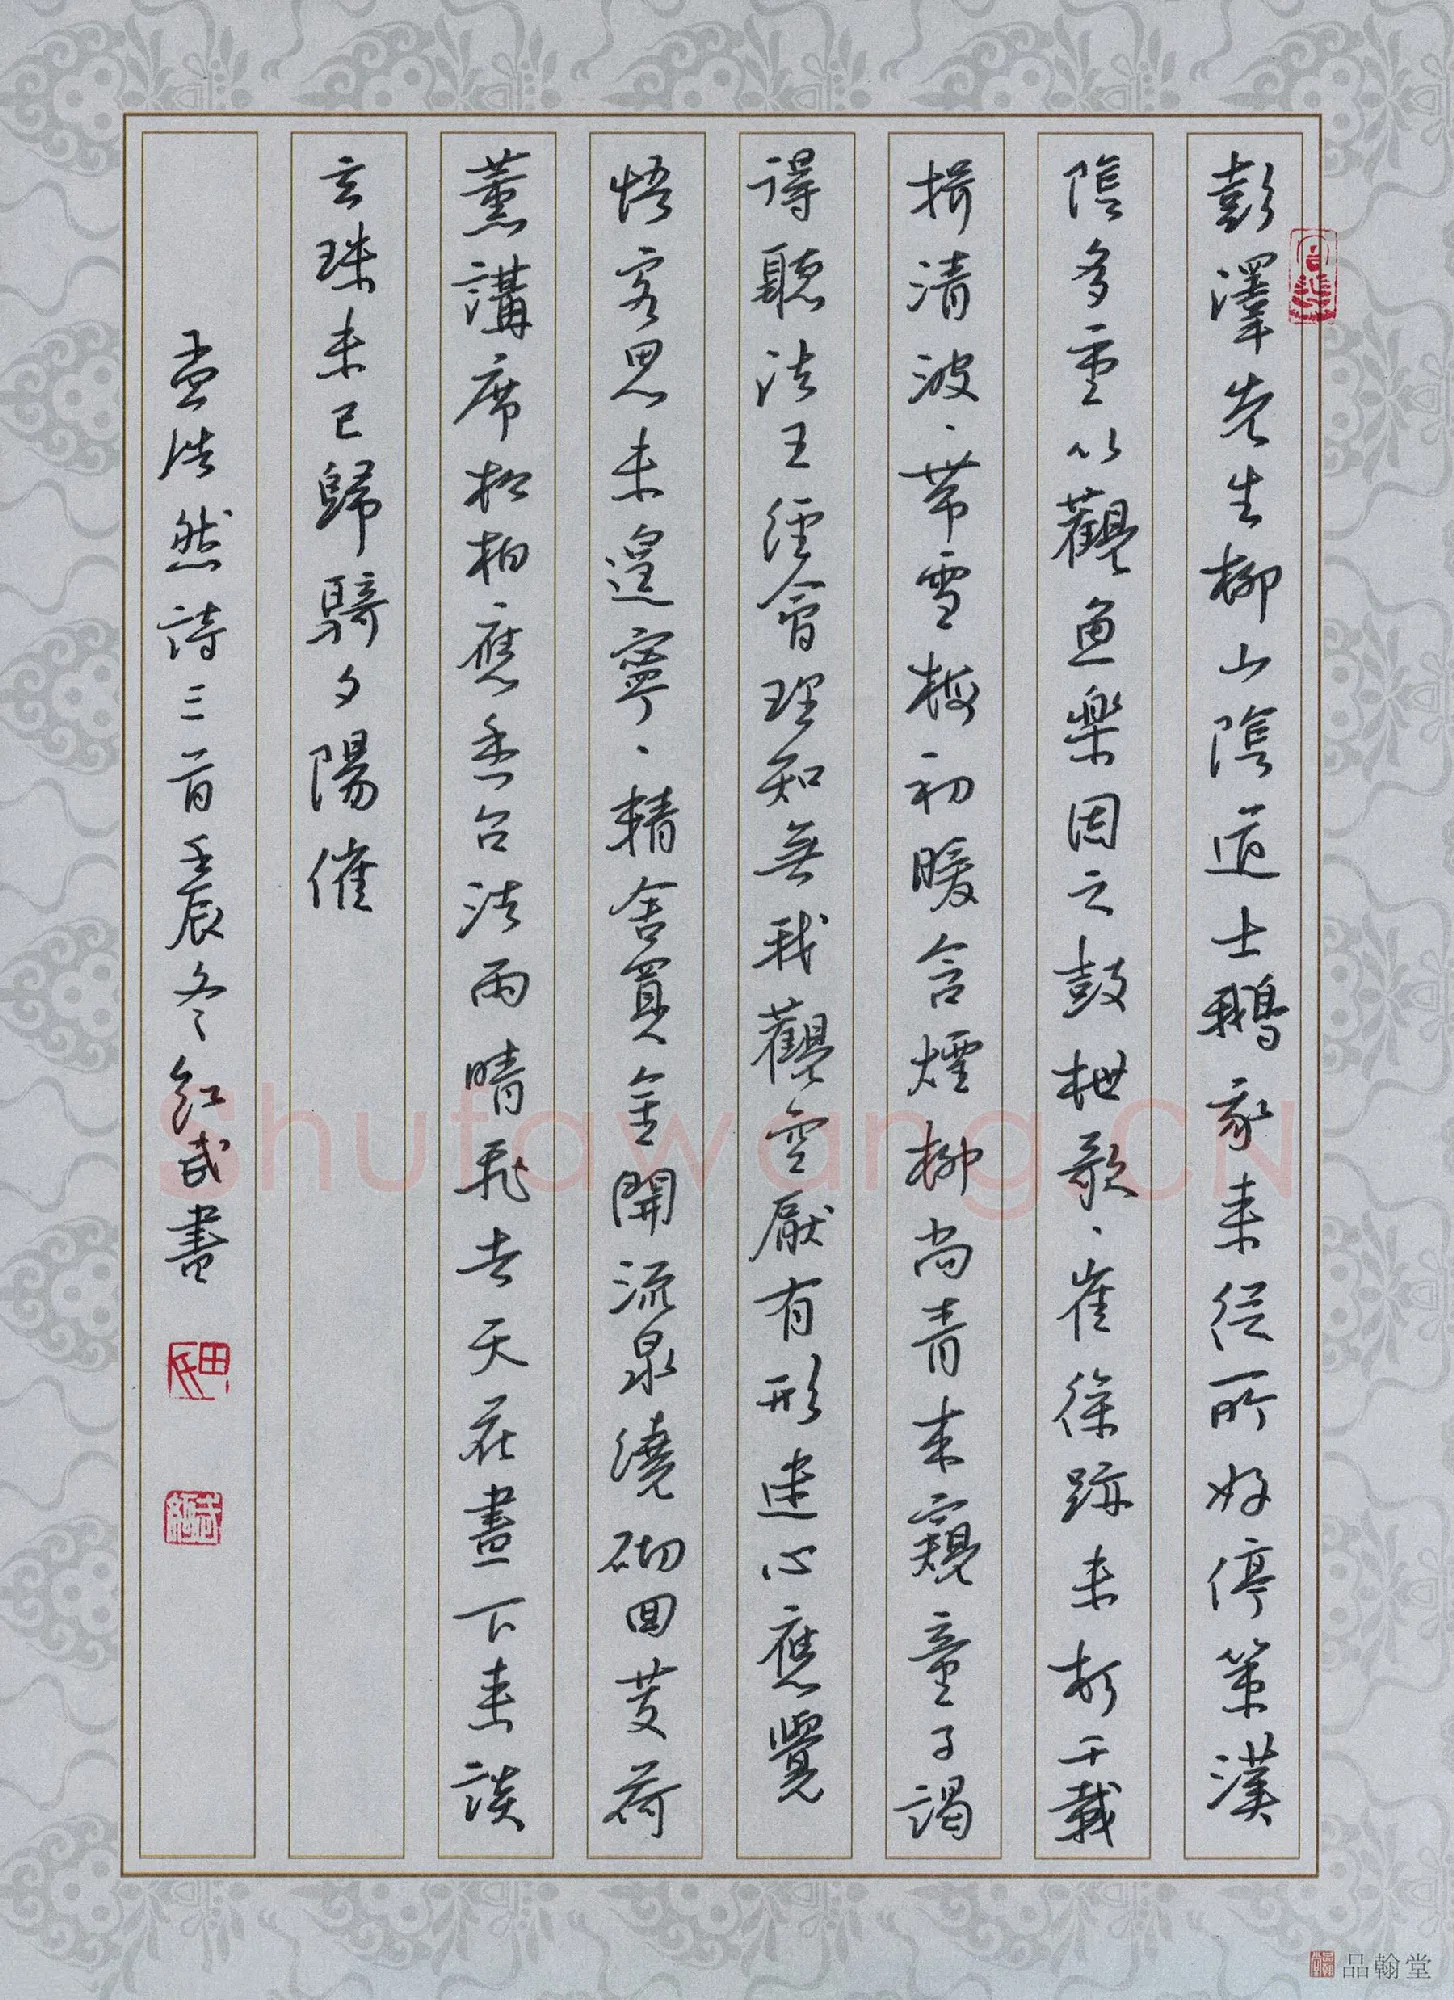 彭澤先生柳山陰道士鵝家来從所好停策漢
陰多重以觀魚樂因之鼓枻歌、崔徐跡未朽千載
揖清波、帶雪梅初暖含煙柳尚青来窺童子謁
得聽法王經會理知無我觀空厭有形迷心應覺
悟客思未遑寧、精舍買金開流泉繞砌回芰荷
薰講席松柏應香台法雨晴飛去天花晝下来談
玄殊未已歸騎夕陽催
孟浩然詩三首壬辰冬紅武書
田氏
Shufawang.CN
品翰堂